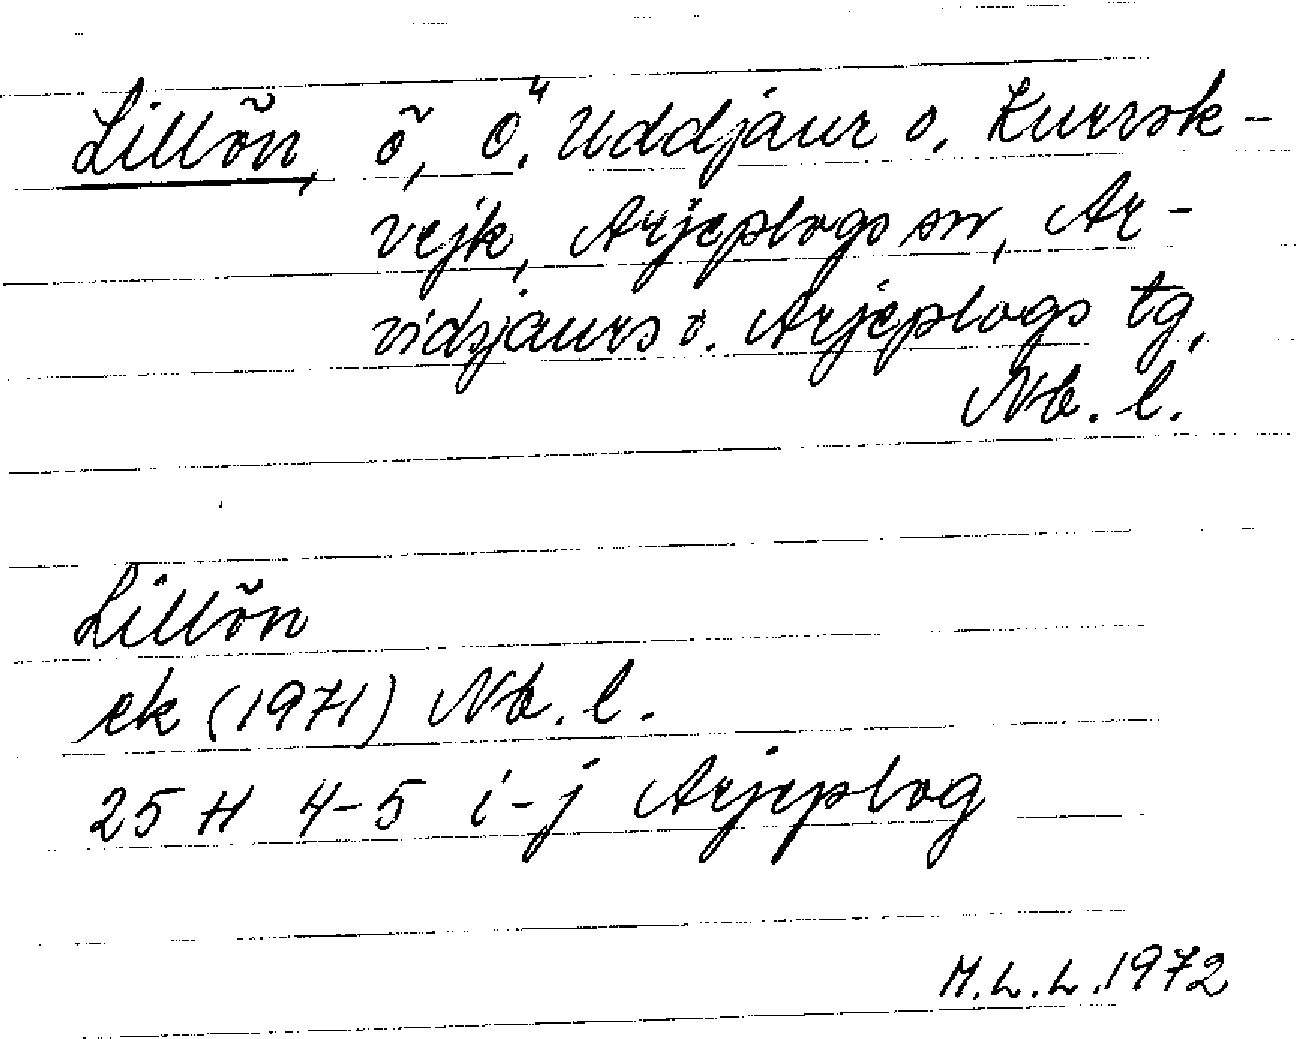 Lillön, ö, Ö. Uddjaur o. Kurrok-
vejk, Arjeplogs sn, Ar-
vidsjaurs o. Arjeplogs tg,
Nb. l.
Lillön
ek (1971) Nb. l.
25 H 4-5 i-j Arjeplog
M.L.L. 1972